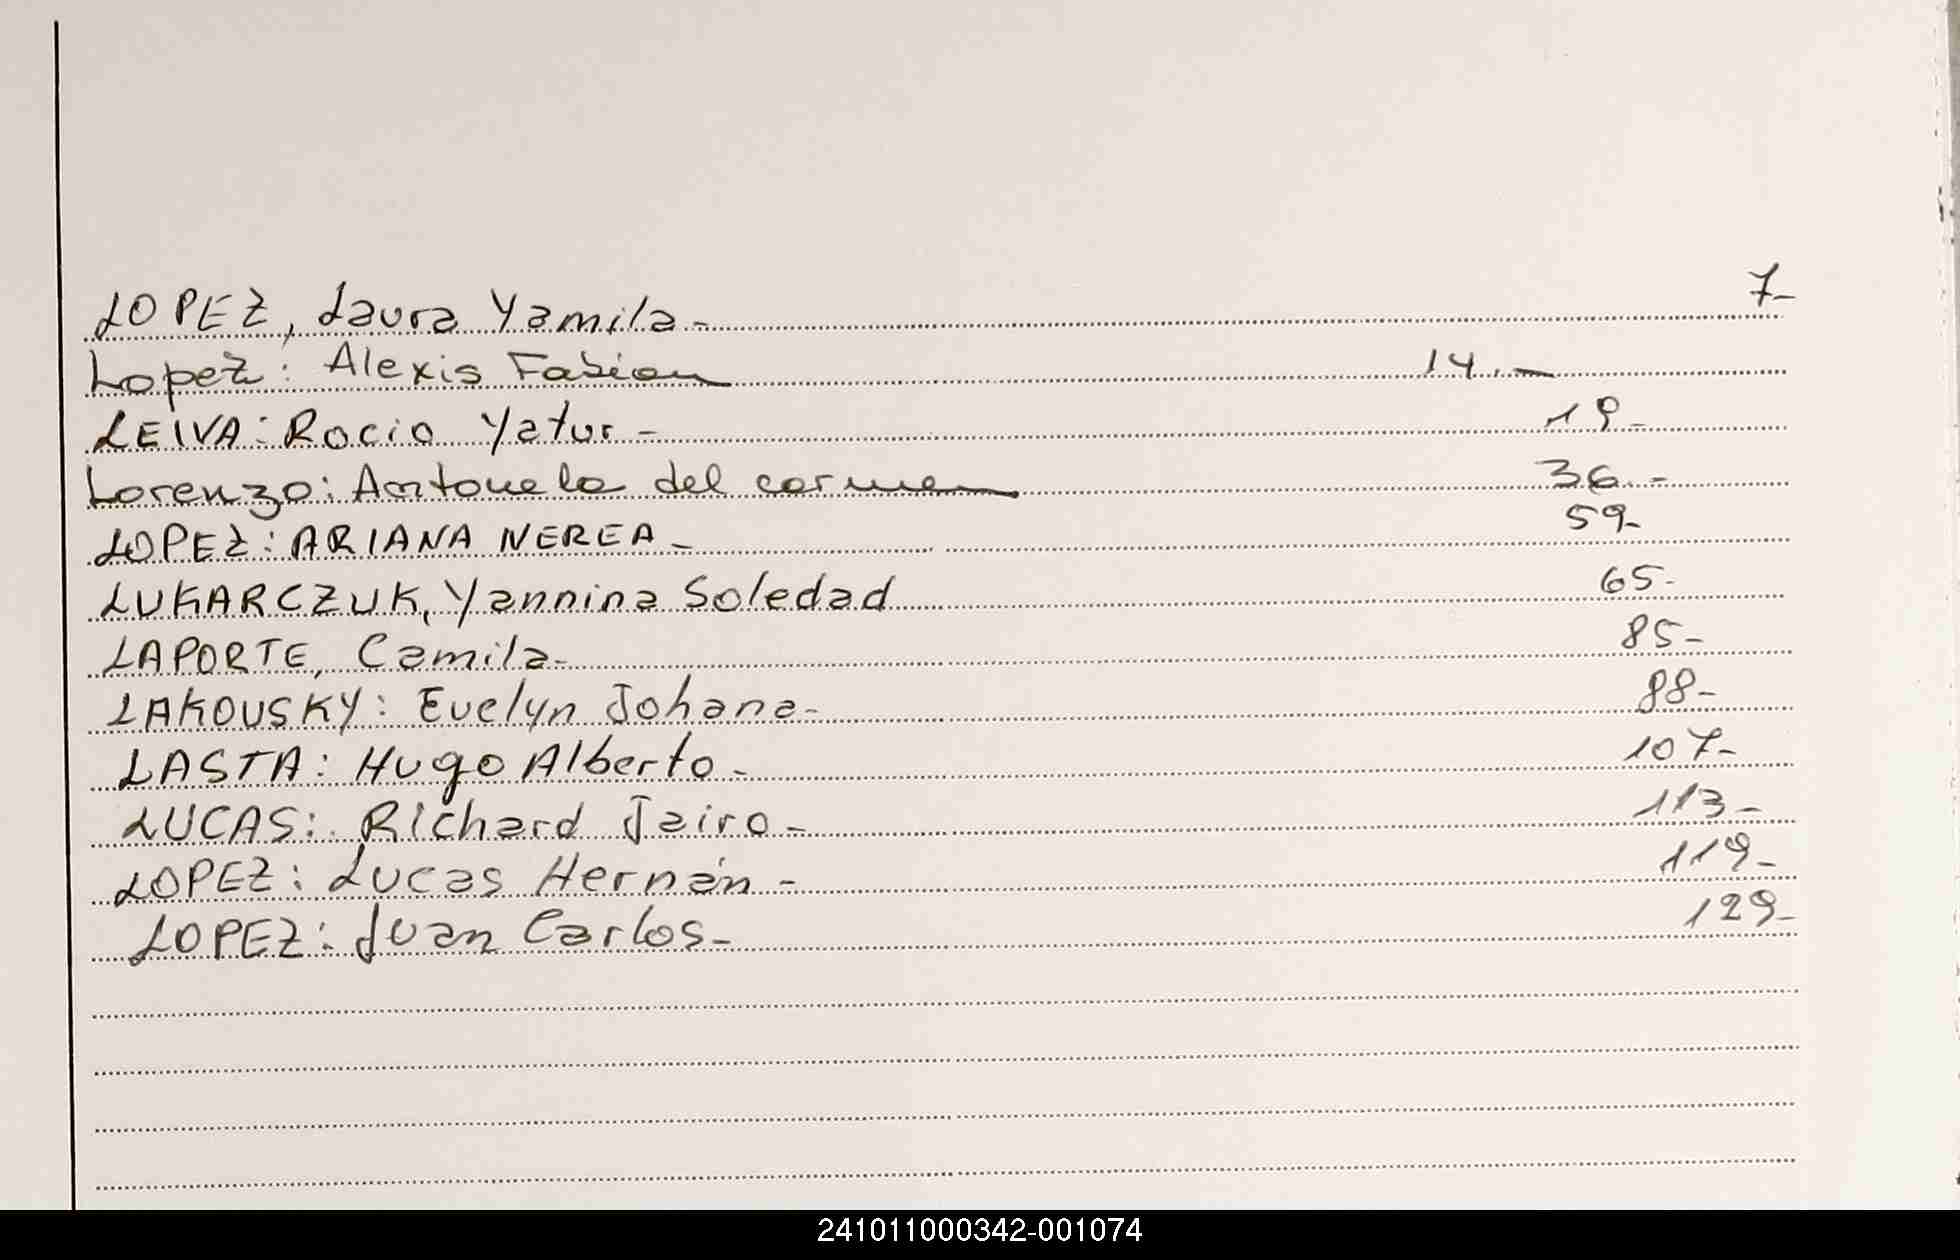 LOPEZ, Laura Yamila- 7-
Lopez: Alexis Fabian 14.-
LEIVA: Rocio Yatur- 19-
Lorenzo: Antonela del carmen 36.-
LOPEZ: ARIANA NEREA- 59-
LUKARCZUK, Yannina Soledad 65-
LAPORTE, Camila- 85-
LAKOUSKY: Evelyn Johana- 88-
LASTA: Hugo Alberto- 107-
LUCAS: Richard Jairo- 113-
LOPEZ: Lucas Hernán- 119-
LOPEZ: Juan Carlos- 129-
241011000342-001074